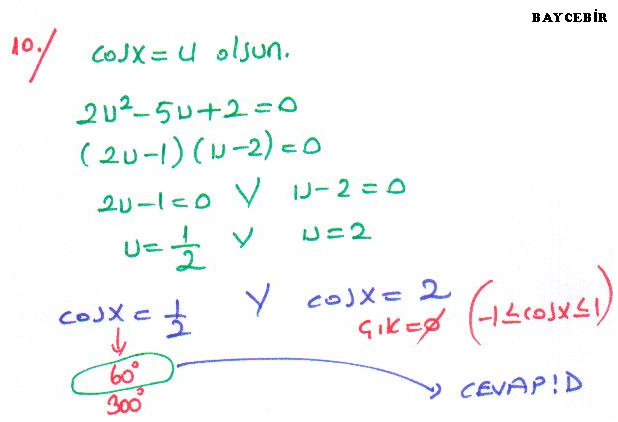 BAYCEBİR
10./ cosx = u olsun.
2u² - 5u + 2 = 0
(2u - 1) (u - 2) = 0
2u - 1 = 0 V u - 2 = 0
u = 1/2 V u = 2
cosx = 1/2 V cosx = 2 (-1 ≤ cosx ≤ 1)
Ç.K = ∅
60°
300°
CEVAP: D